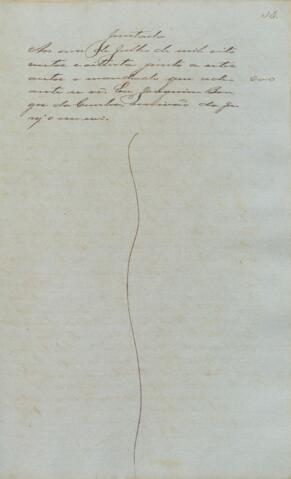 Juntada
Aos onze de Julho de mil oito
centos e oitenta junto a estes
autos o mandado que adi-
ante se vê. Eu, Joaquim
da Cunha, Escrivão
o escrevi.